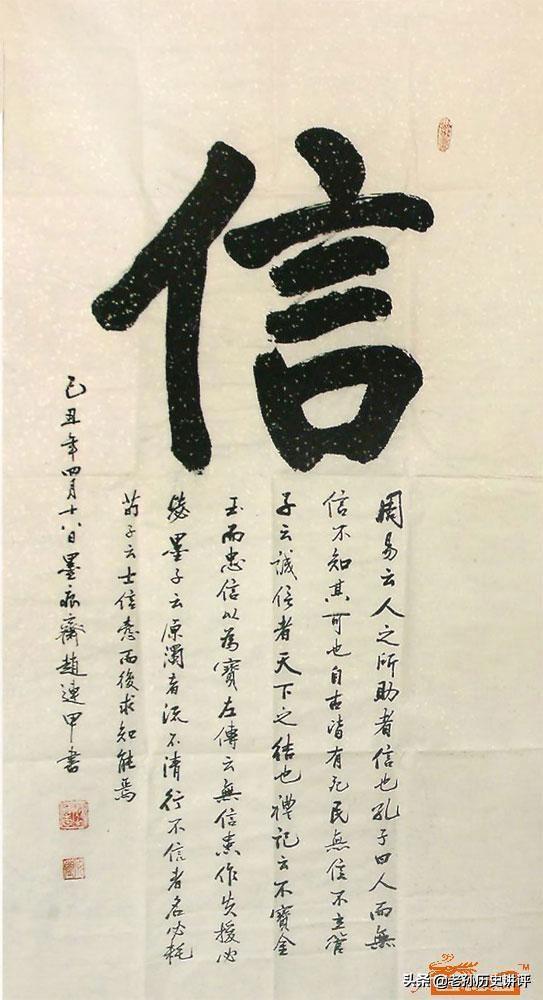 信
周易云人之所助者信也孔子曰人而無
信不知其可也自古皆有死民無信不立管
子云誠信者天下之結也禮記云不寶金
玉而忠信以為寶左傳云無信患作失援必
斃墨子云原濁者流不清行不信者名必耗
荀子云士信愨而後求知能焉
己丑年四月十八日墨齋趙連甲书
TM
头条 @老孙历史讲评